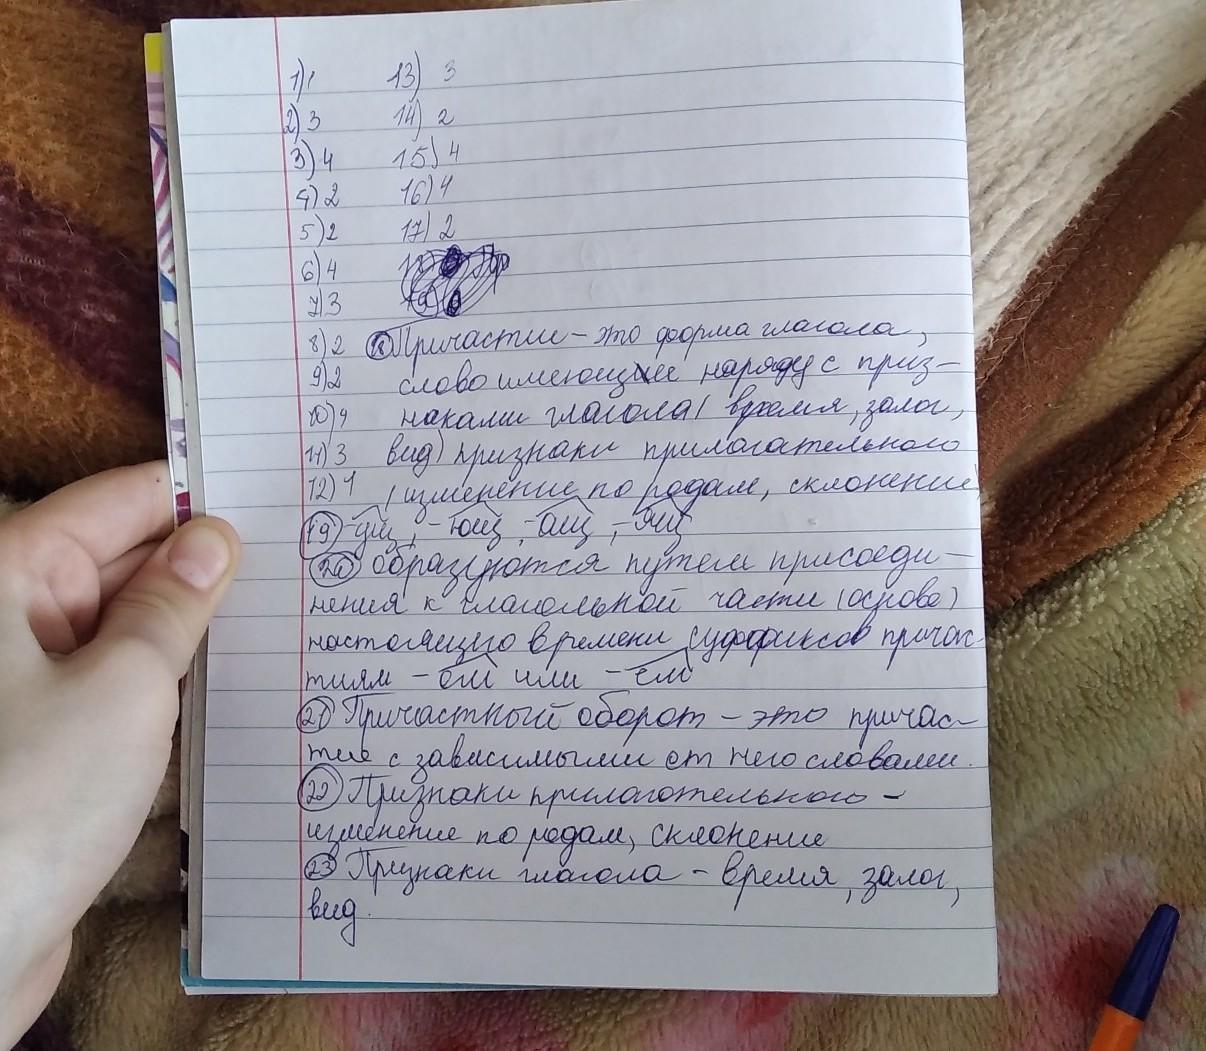 1) 1 13) 3
2) 3 14) 2
3) 4 15) 4
4) 2 16) 4
5) 2 17) 2
6) 4
7) 3
8) 2 18 Причастие – это форма глагола,
9) 2 слово имеющее наряду с приз-
10) 4 наками глагола (время, залог,
11) 3 вид) признаки прилагательного
12) 1 (изменение по родам, склонение)
19) -ущ, -ющ, -ащ, -ящ
20 образуются путем присоеди-
нения к глагольной части (основе)
настоящего времени суффиксов причас-
тиям -ом или -ем
21 Причастный оборот – это причас-
тие с зависимыми от него словами.
22 Признаки прилагательного –
изменение по родам, склонение
23 Признаки глагола – время, залог,
вид.